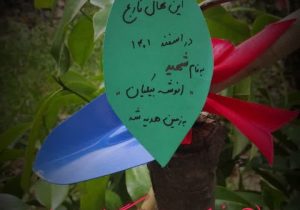 این نهال نارنج
در اسفند ۱۴۰۱
به نام شهید
"انوشه رکیلیان"
به زمین هدیه شد